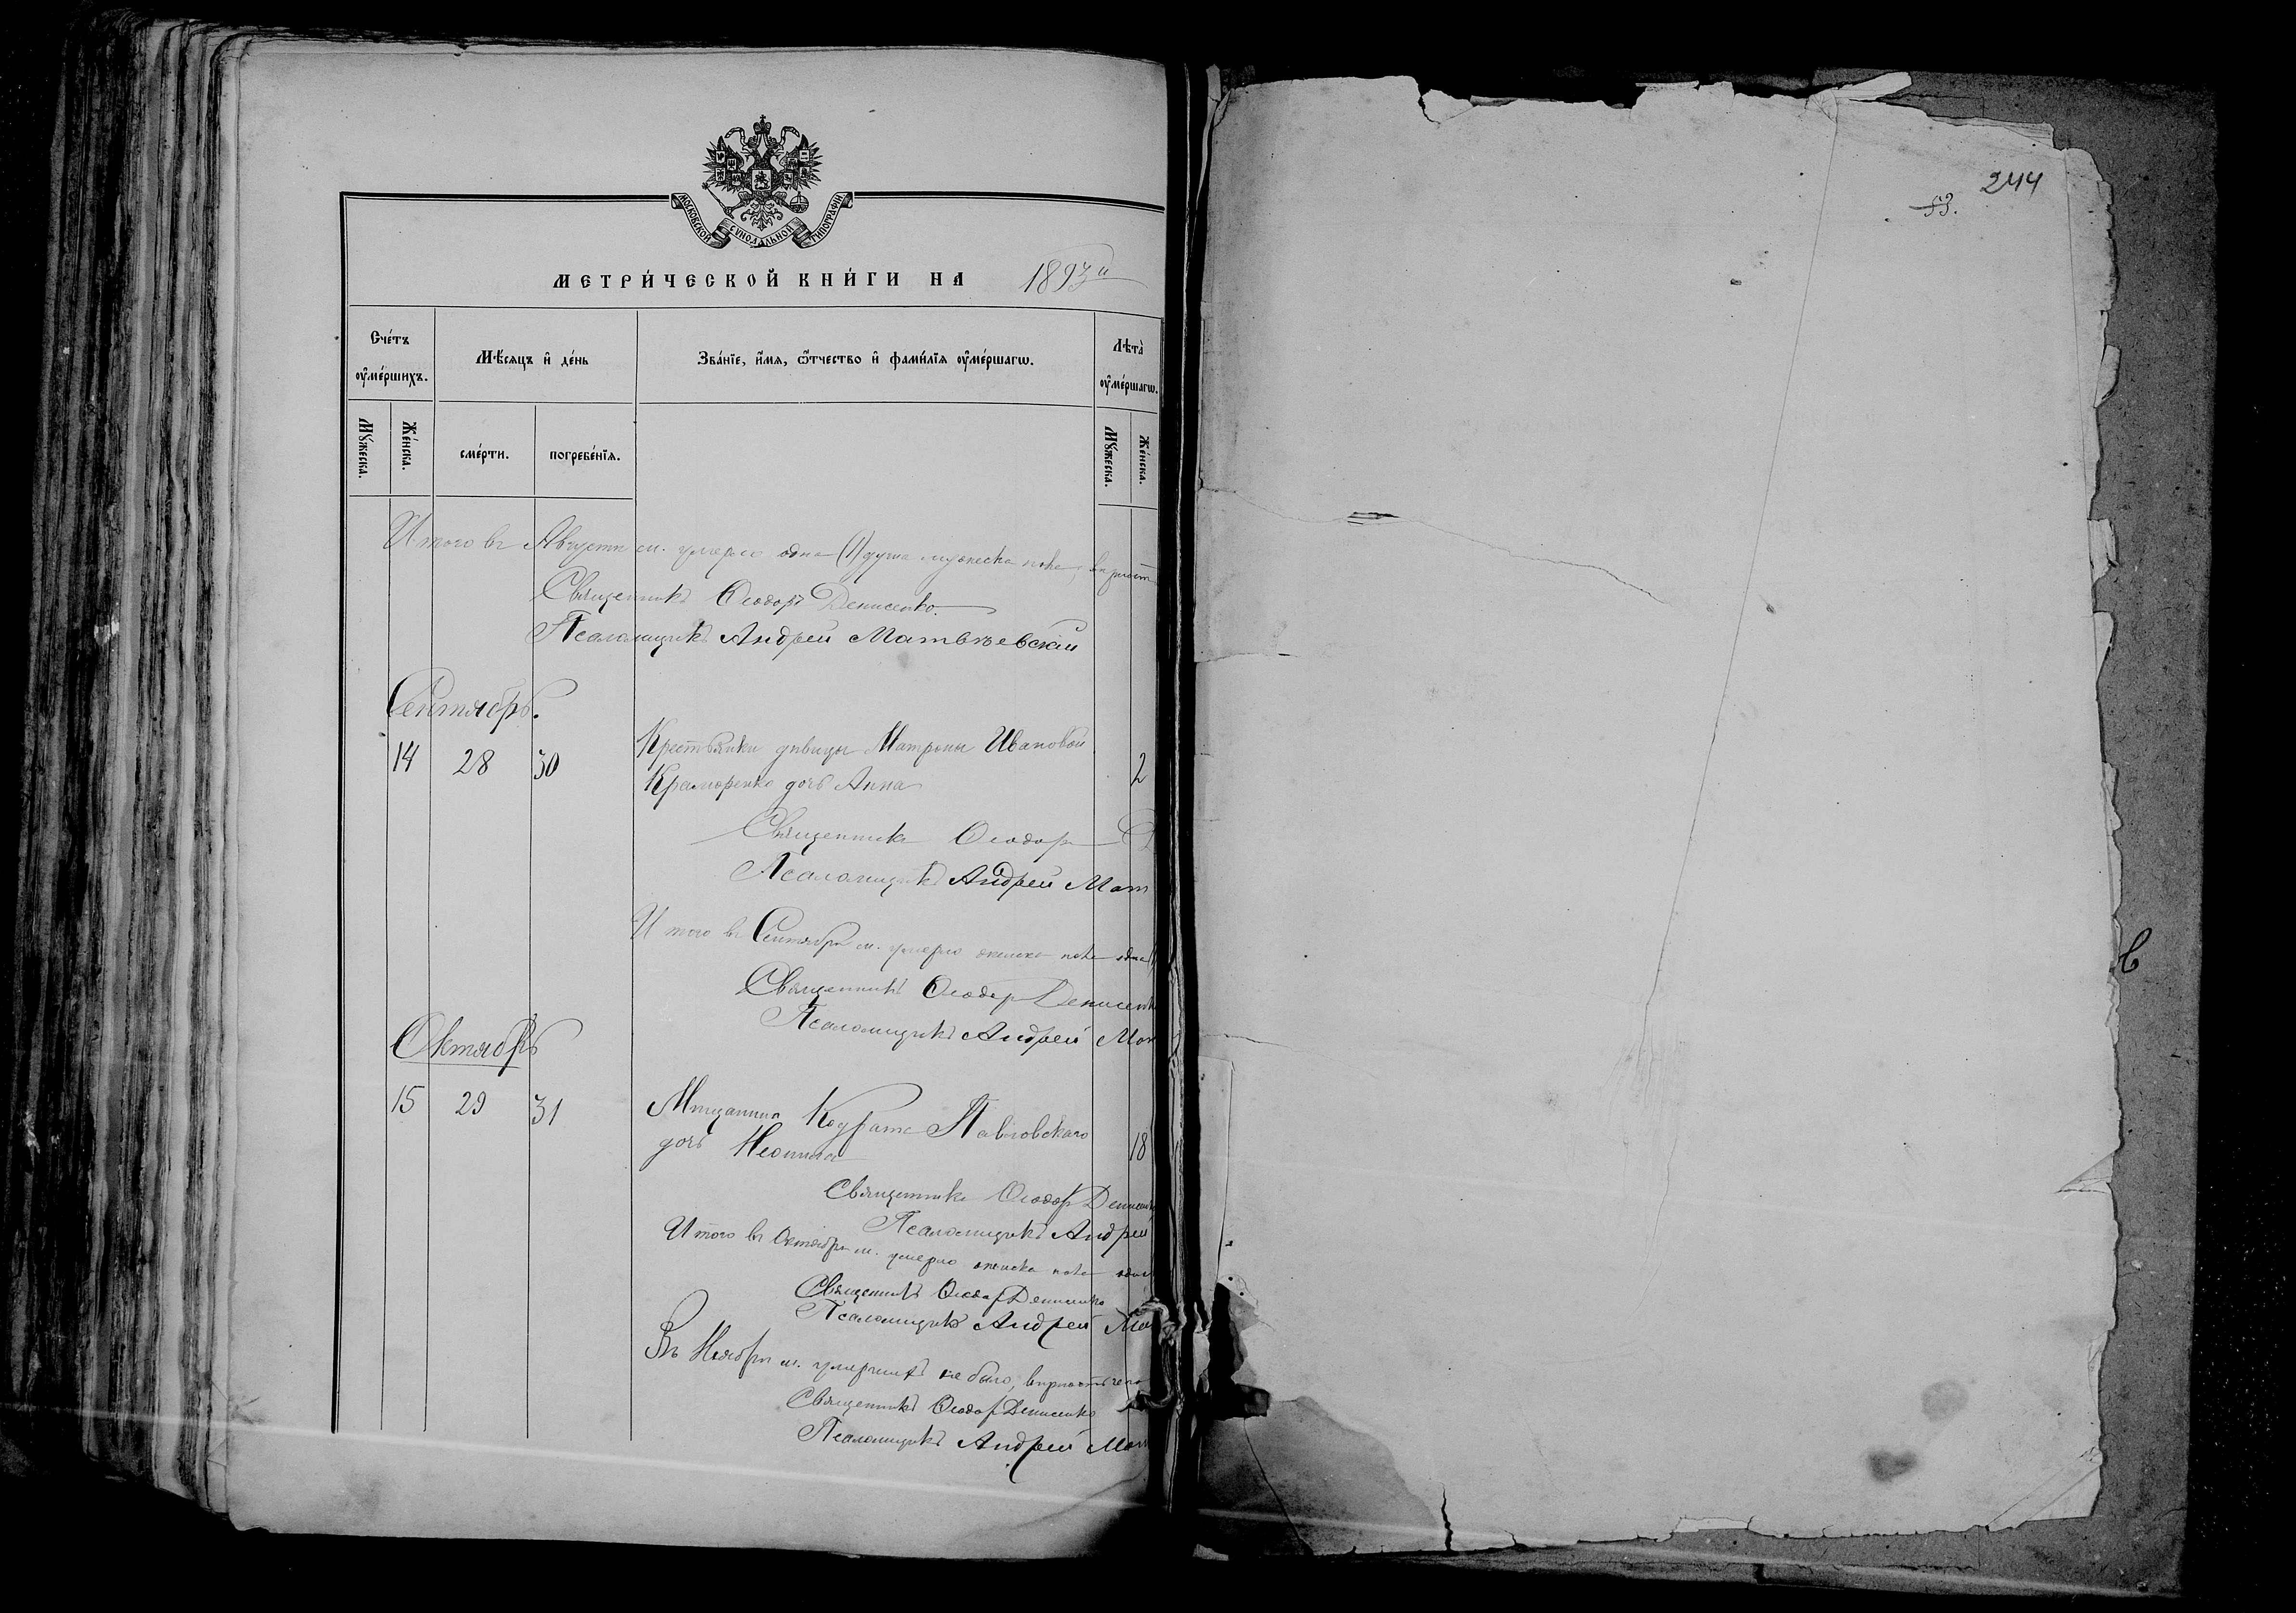 МОСКОВСКОЙ СУНОДАЛЬНОЙ ТИПОГРАФІИ
МЕТРИ́ЧЕСКОЙ КНИ́ГИ НА 1893й
Сче́тъ ᲂу҆ме́ршихъ.
Мѣ́сяцъ и҆ де́нь
Зва́нїе, и҆́мѧ, ѻ҆́тчество и҆ фами́лїѧ ᲂу҆ме́ршагѡ.
Лѣта̀ ᲂу҆ме́ршагѡ.
Мꙋ́жеска.
Же́нска.
сме́рти.
погребе́нїѧ.
Мꙋ́жеска.
Же́нска.
Итого въ Августѣ м. умерло одна (1) душа мужеска пола,
Священникъ Ѳеодоръ Денисенко.
Псаломщикъ Андрей Матвѣевскій
Сентябрь.
14 28 30 Крестьянки дѣвицы Матроны Ивановой 2
Краморенко дочь Анна
Священникъ Ѳеодоръ Д
Псаломщикъ Андрей Мат
Итого въ Сентябрѣ м. умерло женска пола одна
Священникъ Ѳеодоръ Денисенк
Псаломщикъ Андрей Мат
Октябрь
15 29 31 Мѣщанина Кодрата Павловскаго 18
дочь Неонила
Священникъ Ѳеодоръ Денисенк
Псаломщикъ Андрей
Итого въ Октябрѣ м. умерло женска пола одна
Священникъ Ѳеодоръ Денисенко
Псаломщикъ Андрей Мат
Въ Ноябрѣ м. умершихъ не было, въ чемъ
Священникъ Ѳеодоръ Денисенко
Псаломщикъ Андрей Мат
244
53.